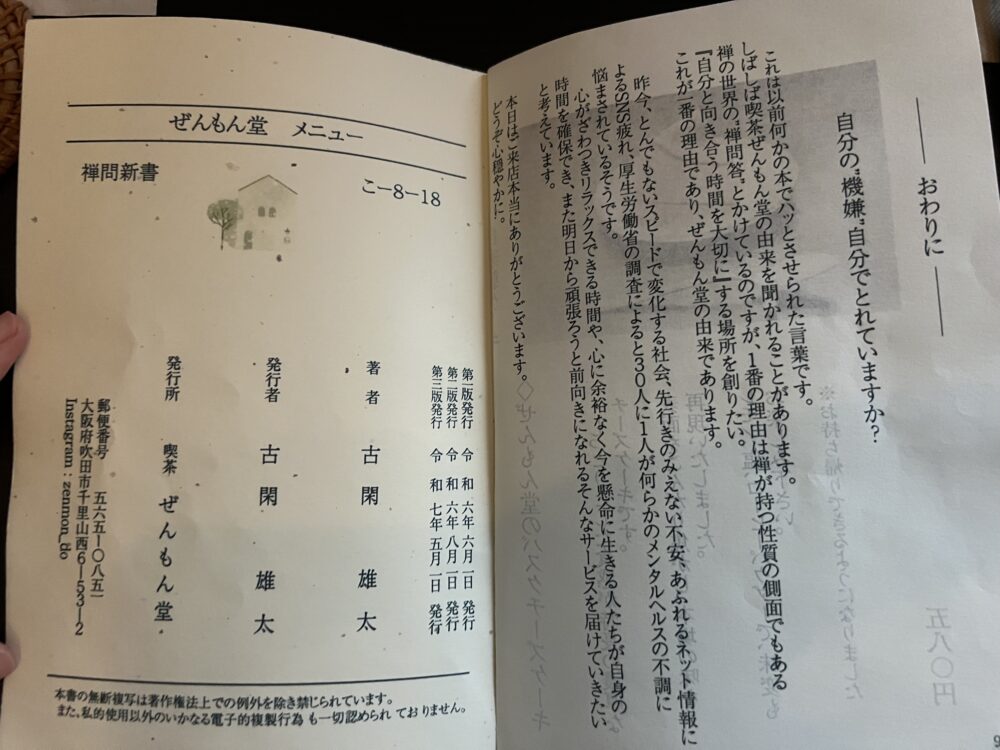 おわりに
自分の“機嫌”自分でとれていますか？
これは以前何かの本でハッとさせられた言葉です。
しばしば喫茶ぜんもん堂の由来を聞かれることがあります。
禅の世界の“禅問答”とかけているのですが、1番の理由は禅が持つ性質の側面でもある
『自分と向き合う時間を大切に』する場所を創りたい。
これが一番の理由であり、ぜんもん堂の由来であります。
昨今、とんでもないスピードで変化する社会、先行きのみえない不安、あふれるネット情報に
よるSNS疲れ、厚生労働省の調査によると30人に1人が何らかのメンタルヘルスの不調に
悩まされているそうです。
心がざわつきリラックスできる時間や、心に余裕なく今を懸命に生きる人たちが自身の
時間を確保でき、また明日から頑張ろうと前向きになれるそんなサービスを届けていきたい
と考えています。
本日はご来店本当にありがとうございます。
どうぞ心穏やかに。
9
ぜんもん堂 メニュー
禅問新書
こ-8-18
第一版発行 令和六年六月一日 発行
第二版発行 令和六年八月一日 発行
第三版発行 令和七年五月一日 発行
著者 古閑 雄太
発行者 古閑 雄太
発行所 喫茶 ぜんもん堂
郵便番号 五六五―〇八五一
大阪府吹田市千里山西6―53―2
Instagram：zenmon_do
本書の無断複写は著作権法上での例外を除き禁じられています。
また、私的使用以外のいかなる電子的複製行為 も一切認められ ており ません。